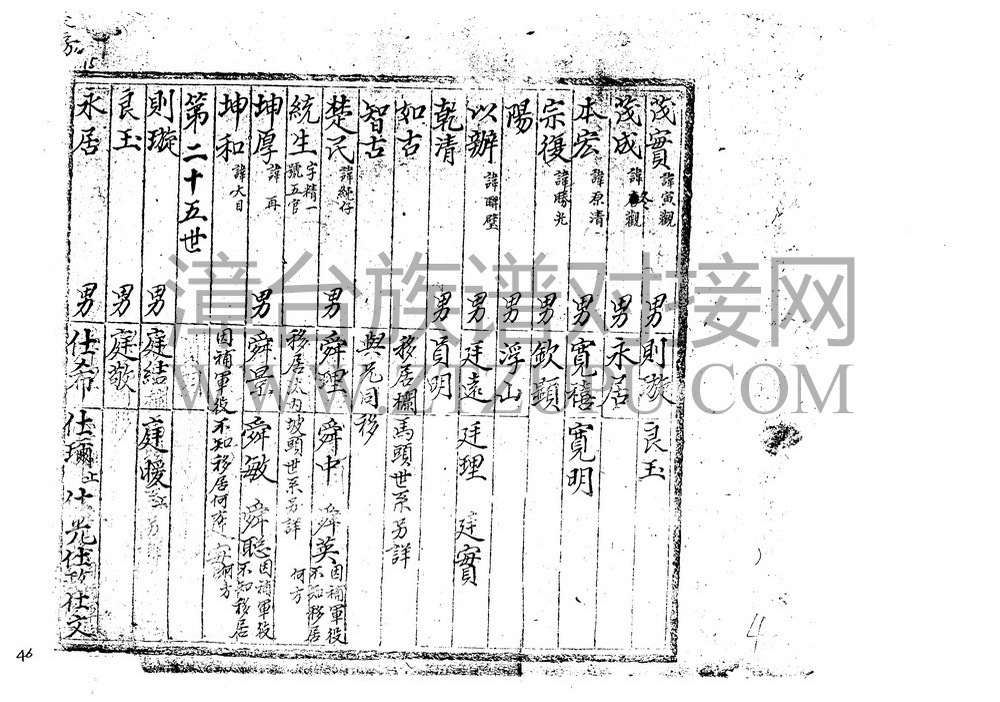 茂實 諱寅觀 男 則璇 良玉
茂成 諱冬觀 男 永居
本宏 諱原清 男 寬禧 寬明
宗復 諱勝光 男 欽顯
陽 男 浮山
以辦 諱聯璧 男 廷遠 廷理 廷實
乾清 男 員明
如古 移居欄馬頭世系另詳
智古 與兄同移
楚民 諱純仔 男 舜理 舜中 舜英 因補軍役不知移居何方
統生 字精一 號五官 移居 内坡頭世系另詳
坤厚 諱再 男 舜景 舜敏 舜聰 因補軍役不知移居何方
坤和 諱大目 因補軍役不知移居何
第二十五世
則璇 男 庭結 庭暖 另詳
良玉 男 庭敬
永居 男 仕希 仕璊 仕光 仕 仕文
15
46
4
漳台族谱对接网
WWW.ZTZUPU.COM